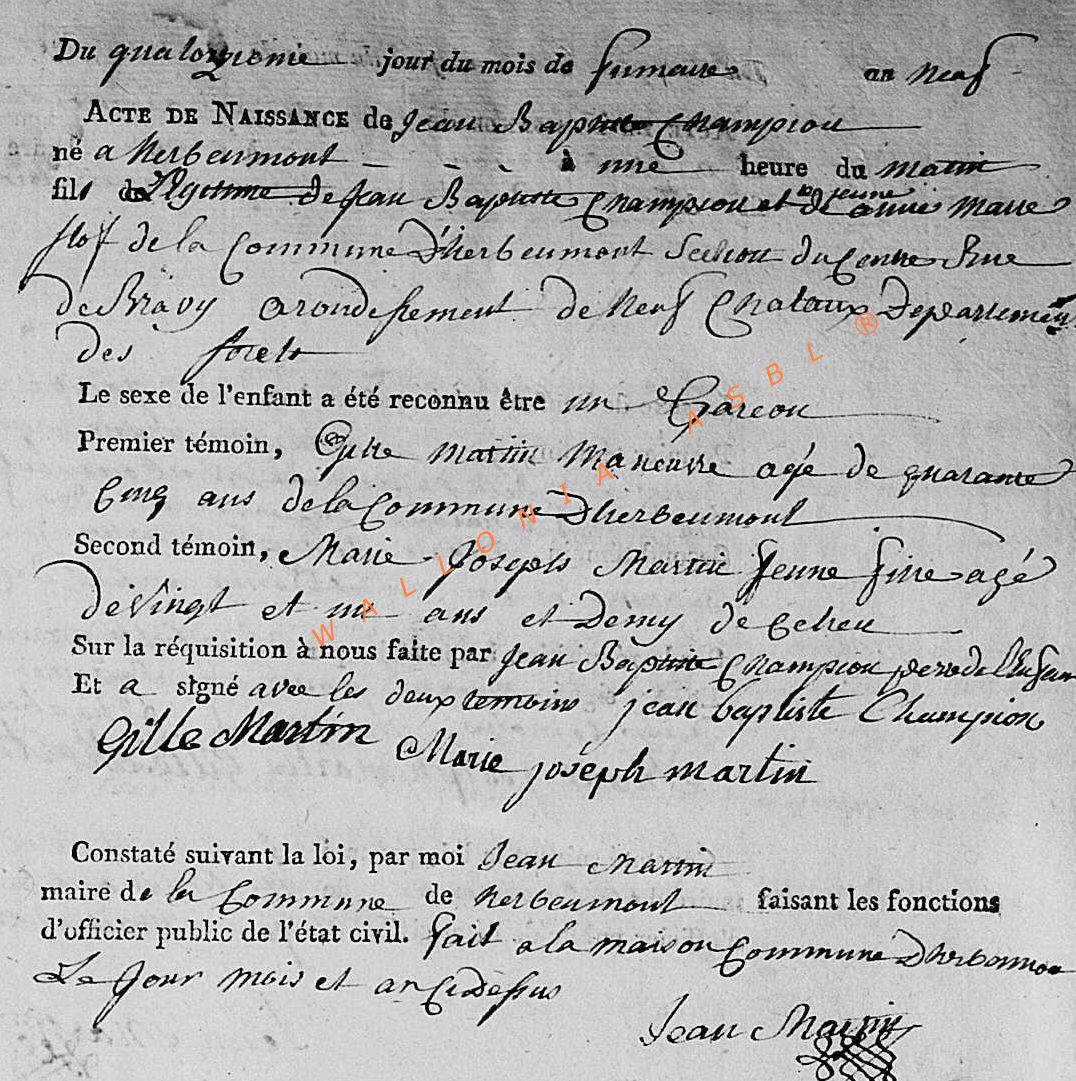 Du quatorzieme jour du mois de frimaire an neuf
ACTE DE NAISSANCE de Jean Baptiste Champion
né a herbeumont à une heure du matin
fils de légitime de Jean Baptiste Champion et de jeune anne marie
de la Commune D'herbeumont Section du Centre Rue
de arondissement de Neuf Chataux Departement
des forets
Le sexe de l'enfant a été reconnu être un Garcon
Premier témoin, Gille martin Maneuvre agé de quarante
Cinq ans de la Commune D'herbeumont
Second témoin, Marie Joseph Martin Jeune fille agé
de Vingt et un ans et Demy de ce lieu
Sur la réquisition à nous faite par Jean Baptiste Champion pere de l'Enfant
Et a signé avec les deux temoins jean baptiste Champion
Gille Martin Marie joseph martin
Constaté suivant la loi, par moi Jean Martin
maire de la Commune de herbeumont faisant les fonctions
d'officier public de l'état civil. fait a la maison Commune D'herbeumon
Le Jour mois et an Cidessus
Jean Martin
WALLONIA ASBL ®